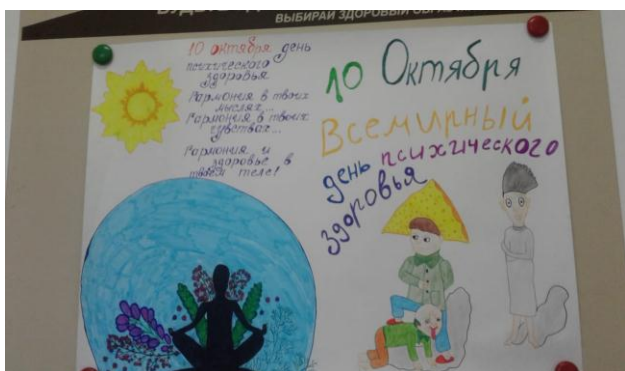 ВЫБИРАЙ ЗДОРОВЫЙ
10 октября день
психического
здоровья
Гармония в твоих
мыслях...
Гармония в твоих
чувствах...
Гармония и
здоровье в
твоём теле!
10 Октября
Всемирный
день психического
здоровья